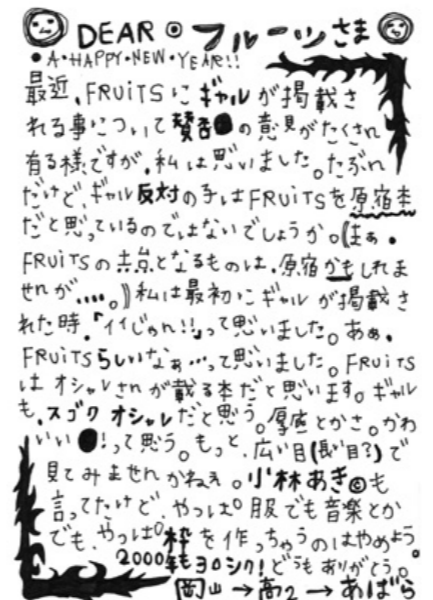 DEAR フルーツさま
A・HAPPY・NEW・YEAR!!
最近、FRUiTSにギャルが掲載さ
れる事について賛否の意見がたくさん
有る様ですが、私は思いました。たぶん
だけど、ギャル反対の子はFRUiTSを原宿本
だと思っているのではないでしょうか。((まぁ・
FRUiTSの土台となるものは、原宿かもしれま
せんが....。))私は最初にギャルが掲載さ
れた時、「イイじゃん!!」って思いました。あぁ、
FRUiTSらしいなぁ…って思いました。FRUiTS
はオシャレさんが載る本だと思います。ギャル
も、スゴクオシャレだと思う。厚底とかさ。かわ
いい!って思う。もっと、広い目(長い目?)で
見てみませんかねぇ。小林あき©も
言ってたけど、やっぱ。服でも音楽とか
でも、やっぱ。枠を作っちゃうのはやめよう。
2000年ヨロシク!どうもありがとう。
岡山→高2→あばら